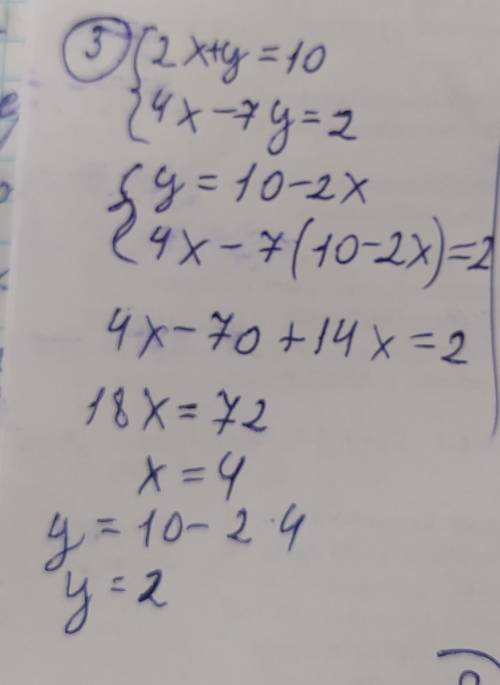 3 { 2x+y=10
4x-7y=2
{ y=10-2x
4x-7(10-2x)=2
4x-70+14x=2
18x=72
x=4
y=10-2·4
y=2